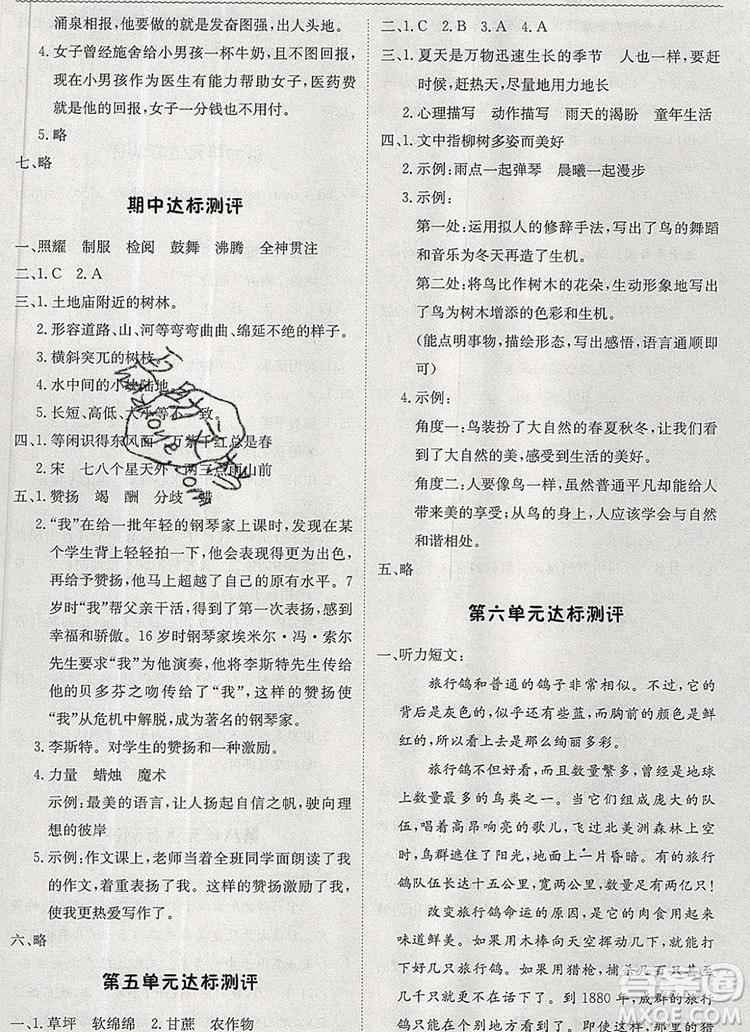 涌泉相报，他要为此而发奋图强，出人头地。
4. 女子曾经施舍给小男孩一杯牛奶，并且不图回报，但小男孩作为医生有能力帮助女子，医药费就是他的回报，女子一分钱也不用付。
5. 略
七、略
期中达标测评
一、照耀 制服 检阅 鼓舞 沸腾 全神贯注
二、1. C 2. A
三、1. 土地庙附近的树林。
2. 形容道路、山、河等弯弯曲曲、绵延不绝的样子。
3. 横斜突兀的树枝。
4. 水中间的小块陆地。
5. 长短、高低、大小等不一致。
四、1. 等闲识得东风面 万紫千红总是春
2. 宋 七八个星天外 两三点雨山前
五、1. 赞扬 竭 酬 分歧 蜡
2. “我”在给一批年轻的钢琴家上课时，发现在某
个学生背上轻轻拍一下，他会表现得更为出色，
再给予赞扬，他马上超越了自己的原有水平。7
岁时“我”帮父亲干活，受到他的赞扬，感到
幸福和骄傲。16 岁时钢琴家埃米尔·冯·索尔
先生主动要“我”为他演奏，他将李斯特传给他
的贝多芬之吻给了“我”，这样的赞扬使
“我”从危机中解脱，成为著名的钢琴家。
3. 李斯特。对学生的赞扬和一种激励。
4. 力量 蜡烛 魔术
示例：最美的语言，让人扬起自信之帆，驶向
梦想的彼岸
5. 示例：作文课上，老师当着全班同学朗读了我
的作文，着重赞扬了我。这样的赞扬激励着我，
使我更热爱写作了。
六、略
第五单元达标测评
一、1. 草坪 软绵绵 2. 甘蔗 农作物
二、1. C 2. B 3. A
三、1. 夏天是万物迅速生长的季节 人也一样，要赶
时候，赶热天，尽量地用力地长
2. 心理描写 动作描写 雨天的渴盼 童年生活
四、1. 文中指柳树多姿而美好
2. 示例：雨点一起弹琴 晨曦一起漫步
3. 示例：
第一处：运用拟人的修辞手法，写鸟的舞蹈
和音乐为冬天再造了生机。
第二处：将鸟比作树木的花朵，生动形象地
写出了鸟为树木增添的色彩和生机。
(能点明事物，描绘形态，语言通顺即
可)
4. 示例：
角度一：鸟装扮了大自然的春夏秋冬，让我们看
到了大自然的多姿多彩。
角度二：人也要像鸟一样，虽然普通平凡却给人
带来美的享受；从鸟的身上，人应该学会与自然
和谐相处。
五、略
第六单元达标测评
一、听力短文：
旅行鸽和普通的鸽子非常相似。不过，它的
背后是灰色的，似乎还有些蓝，而胸前的颜色是鲜
红的，所以，看起来色彩绚丽多彩。
旅行鸽的数量非常多，而且曾经是地球上
数量最多的鸟类之一。它们结成庞大的队
伍，唱着高昂嘹亮的歌儿，飞过北美洲森林和
草原时，总会看见地上一片昏暗。有的旅行
鸽队伍长达十五公里，宽两公里，数量有两亿多只。
改变旅行鸽命运的原因，是因为它们的肉吃起来
味道鲜美。如果用木棒向天空用力一扔，就能
打下几只旅行鸽；如果用猎枪，捕杀几百只旅
行鸽也没有问题。到 1880 年，成群的旅行